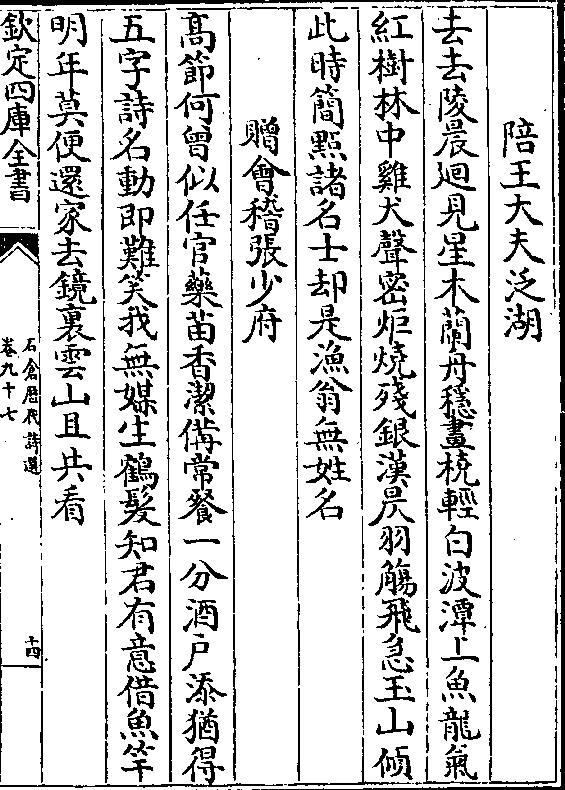 陪王大夫泛湖
去去陵晨迴見星木蘭舟穩畫桡輕白波潭上魚龍氣
紅樹林中雞犬聲密炬燒殘銀漢昃羽觴飛急玉山傾
此時簡㸃諸名士却是漁翁無姓名
贈會稽張少府
髙節何曾似任官藥苗香潔備常餐一分酒户添猶得
五字詩名動即難笑我無媒生鶴髮知君有意借魚竿
明年莫便還家去鏡裏雲山且共看
欽定四庫全書
石倉歴代詩選
卷九十七
十四